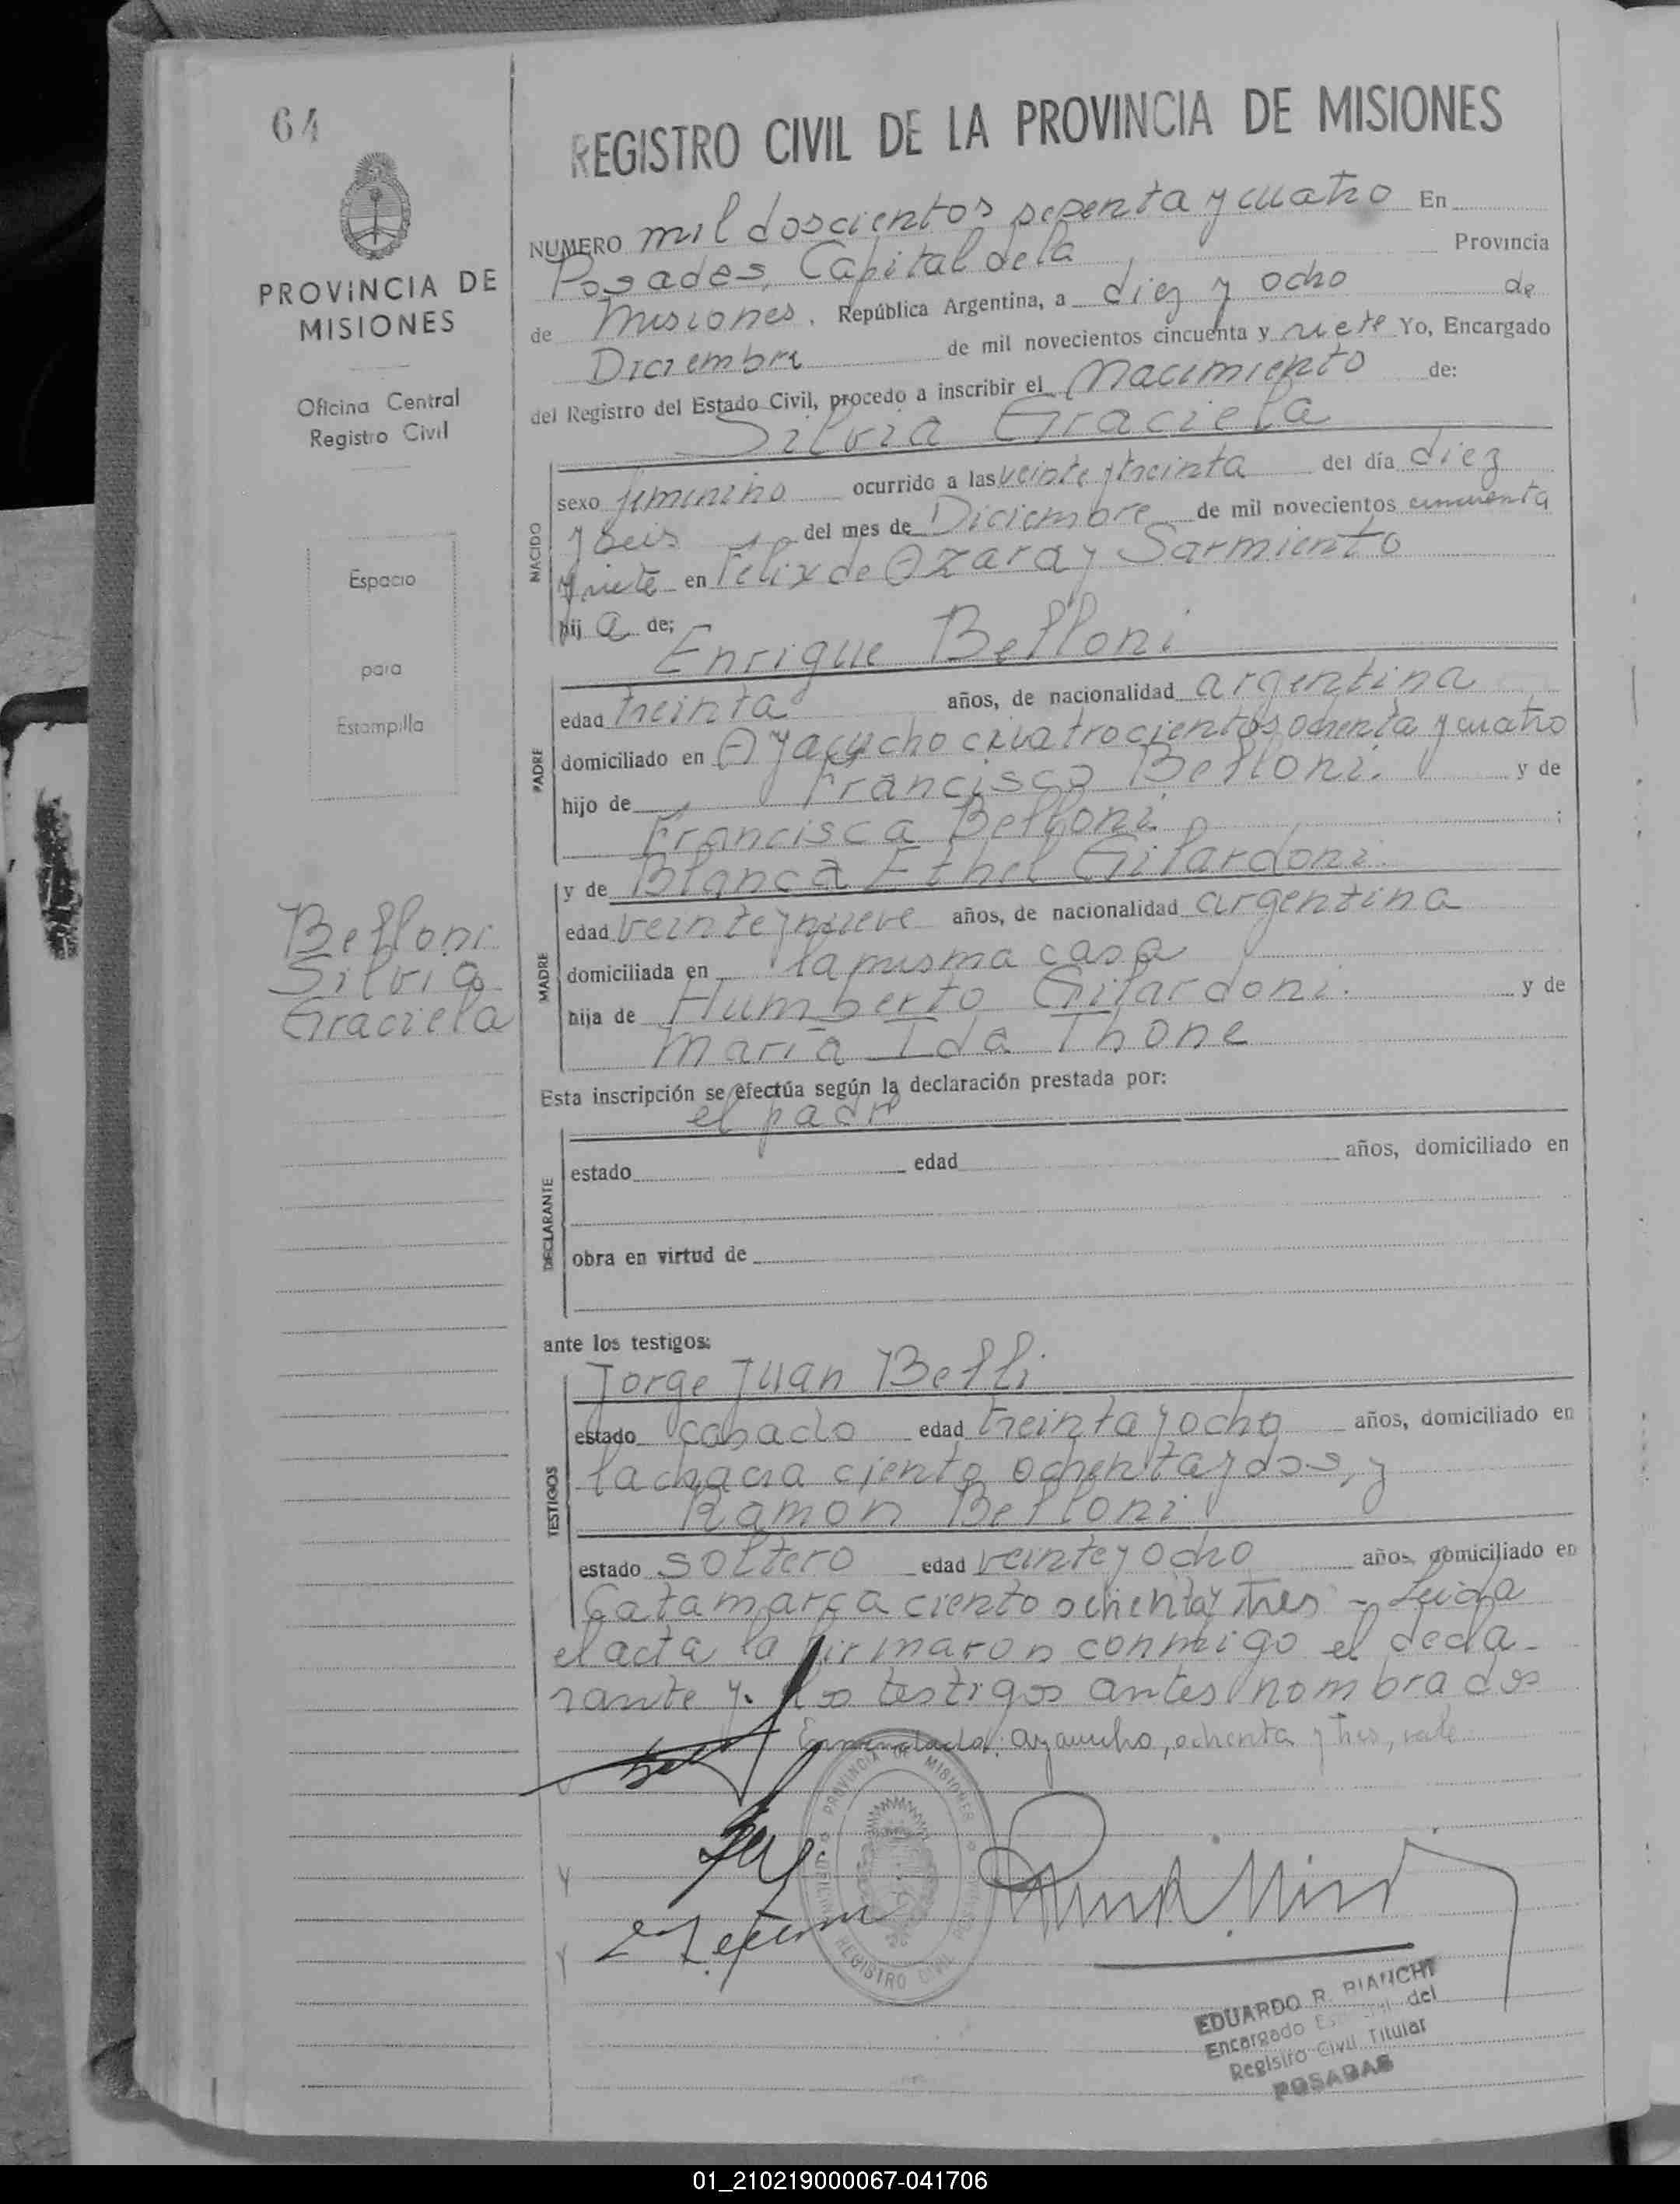 64
PROVINCIA DE
MISIONES
Oficina Central
Registro Civil
Espacio
para
Estampilla
Belloni
Silvia
Graciela
REGISTRO CIVIL DE LA PROVINCIA DE MISIONES
NUMERO mil doscientos sesenta y cuatro En
Posadas, Capital de la Provincia
de Misiones, República Argentina, a diez y ocho de
Diciembre de mil novecientos cincuenta y siete Yo, Encargado
del Registro del Estado Civil, procedo a inscribir el Nacimiento de:
Silvia Graciela
NACIDO
sexo femenino ocurrido a las veinte y treinta del día diez
y seis del mes de Diciembre de mil novecientos cincuenta
y siete en Félix de Azara y Sarmiento
hij a de;
Enrique Belloni
PADRE
edad treinta años, de nacionalidad argentina
domiciliado en Ayacucho cuatrocientos ochenta y cuatro
hijo de Francisco Belloni. y de
Francisca Belloni ;
y de Blanca Ethel Gilardoni.
MADRE
edad veinte y nueve años, de nacionalidad argentina
domiciliada en la misma casa
hija de Humberto Gilardoni. y de
Maria Ida Thone
Esta inscripción se efectúa según la declaración prestada por:
el padre
DECLARANTE
estado edad años, domiciliado en
obra en virtud de
ante los testigos:
Jorge Juan Belli
TESTIGOS
estado casado edad treinta y ocho años, domiciliado en
la chacra ciento ochenta y dos, y
Ramon Belloni
estado soltero edad veinte y ocho años, domiciliado en
Catamarca ciento ochenta y tres - Leida
el acta la firmaron conmigo el decla-
rante y los testigos antes nombrados
Enmendado: ayacucho, ochenta y tres, vale
PROVINCIA DE MISIONES
REGISTRO CIVIL
EDUARDO R. BIANCHI
Encargado del
Registro Civil Titular
POSADAS
01_210219000067-041706